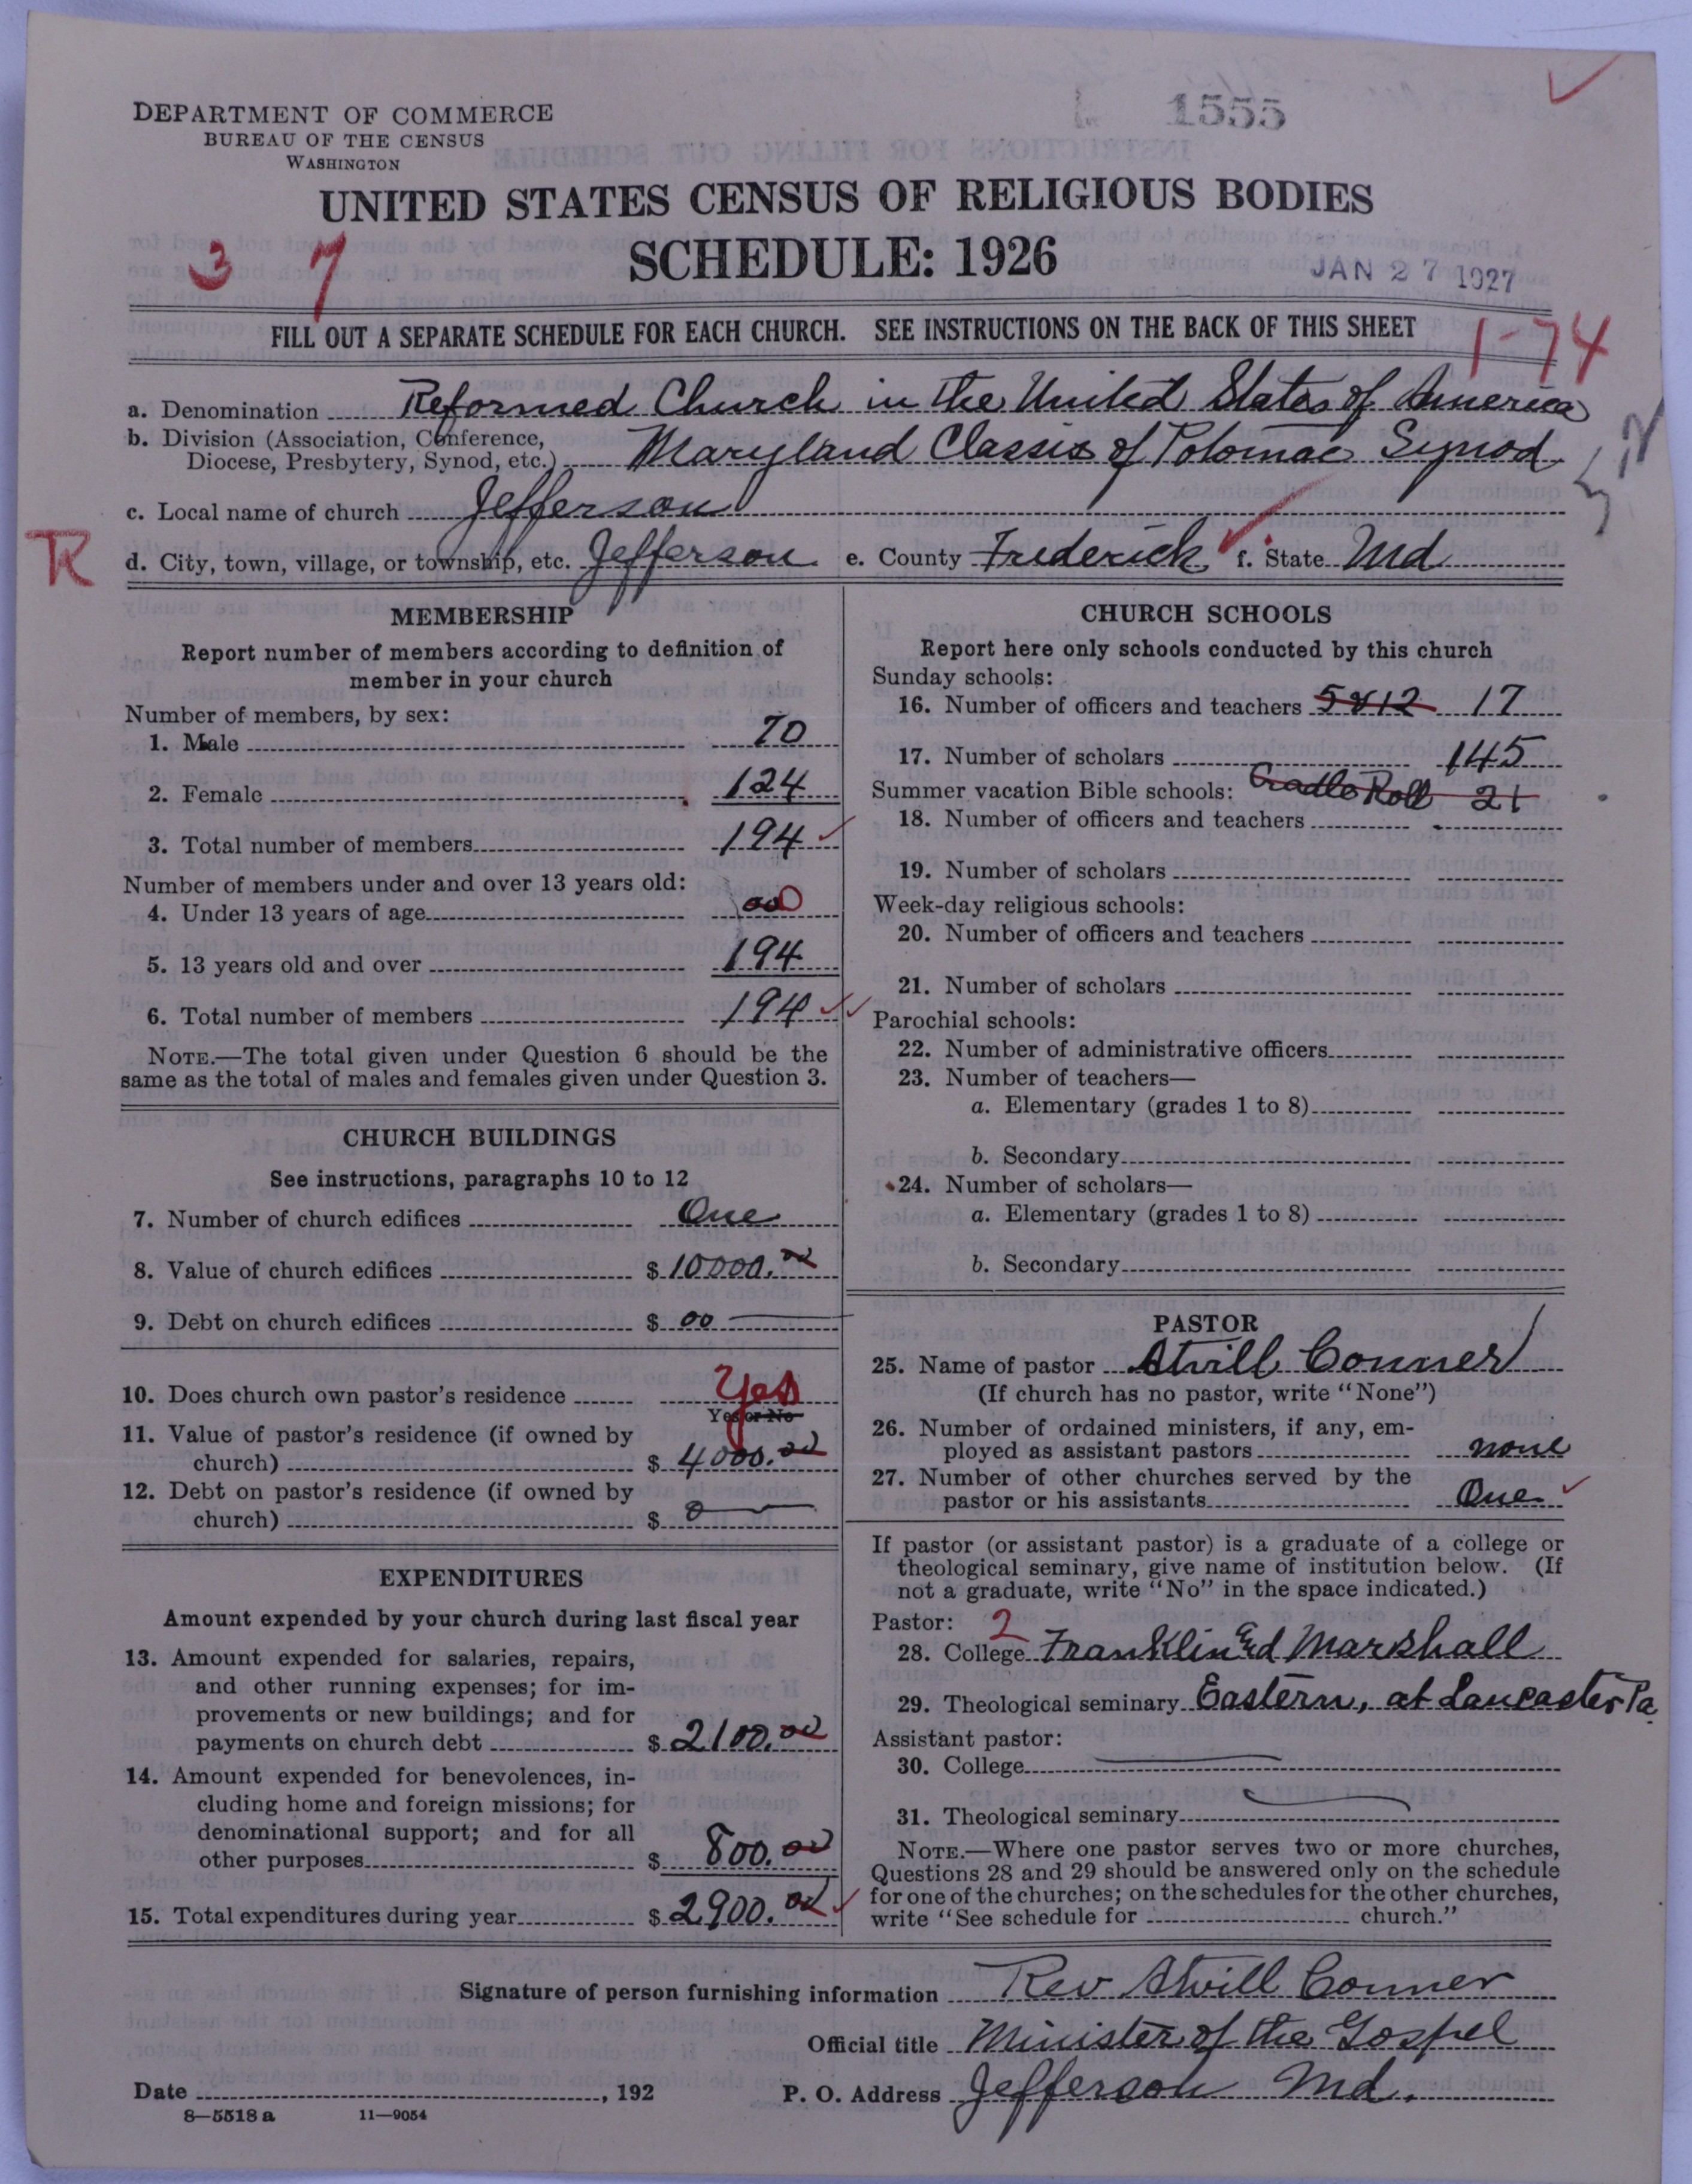 DEPARTMENT OF COMMERCE
BUREAU OF THE CENSUS
WASHINGTON
1555
UNITED STATES CENSUS OF RELIGIOUS BODIES
SCHEDULE: 1926
3 7
JAN 27 1927
FILL OUT A SEPARATE SCHEDULE FOR EACH CHURCH. SEE INSTRUCTIONS ON THE BACK OF THIS SHEET
1-74
a. Denomination Reformed Church in the United States of America
b. Division (Association, Conference,
Diocese, Presbytery, Synod, etc.) Maryland Classis of Potomac Synod
c. Local name of church Jefferson
R
d. City, town, village, or township, etc. Jefferson e. County Frederick f. State Md
MEMBERSHIP
Report number of members according to definition of
member in your church
Number of members, by sex:
1. Male 70
2. Female 124
3. Total number of members 194
Number of members under and over 13 years old:
4. Under 13 years of age 00
5. 13 years old and over 194
6. Total number of members 194
NOTE.—The total given under Question 6 should be the
same as the total of males and females given under Question 3.
CHURCH BUILDINGS
See instructions, paragraphs 10 to 12
7. Number of church edifices One
8. Value of church edifices $ 10000.00
9. Debt on church edifices $ 00
10. Does church own pastor's residence Yes
Yes or No
11. Value of pastor's residence (if owned by
church) $ 4000.00
12. Debt on pastor's residence (if owned by
church) $ 0
EXPENDITURES
Amount expended by your church during last fiscal year
13. Amount expended for salaries, repairs,
and other running expenses; for im-
provements or new buildings; and for
payments on church debt $ 2100.00
14. Amount expended for benevolences, in-
cluding home and foreign missions; for
denominational support; and for all
other purposes $ 800.00
15. Total expenditures during year $ 2900.00
CHURCH SCHOOLS
Report here only schools conducted by this church
Sunday schools:
16. Number of officers and teachers 5 & 12 17
17. Number of scholars 145
Summer vacation Bible schools: Cradle Roll 21
18. Number of officers and teachers
19. Number of scholars
Week-day religious schools:
20. Number of officers and teachers
21. Number of scholars
Parochial schools:
22. Number of administrative officers
23. Number of teachers—
a. Elementary (grades 1 to 8)
b. Secondary
24. Number of scholars—
a. Elementary (grades 1 to 8)
b. Secondary
PASTOR
25. Name of pastor Atvill Conner
(If church has no pastor, write "None")
26. Number of ordained ministers, if any, em-
ployed as assistant pastors none
27. Number of other churches served by the
pastor or his assistants One
If pastor (or assistant pastor) is a graduate of a college or
theological seminary, give name of institution below. (If
not a graduate, write "No" in the space indicated.)
Pastor: 2
28. College Franklin and Marshall
29. Theological seminary Eastern, at Lancaster Pa
Assistant pastor:
30. College
31. Theological seminary
NOTE.—Where one pastor serves two or more churches,
Questions 28 and 29 should be answered only on the schedule
for one of the churches; on the schedules for the other churches,
write "See schedule for church."
Signature of person furnishing information Rev Atvill Conner
Official title Minister of the Gospel
Date , 192
P. O. Address Jefferson Md.
8—5518 a 11—9054